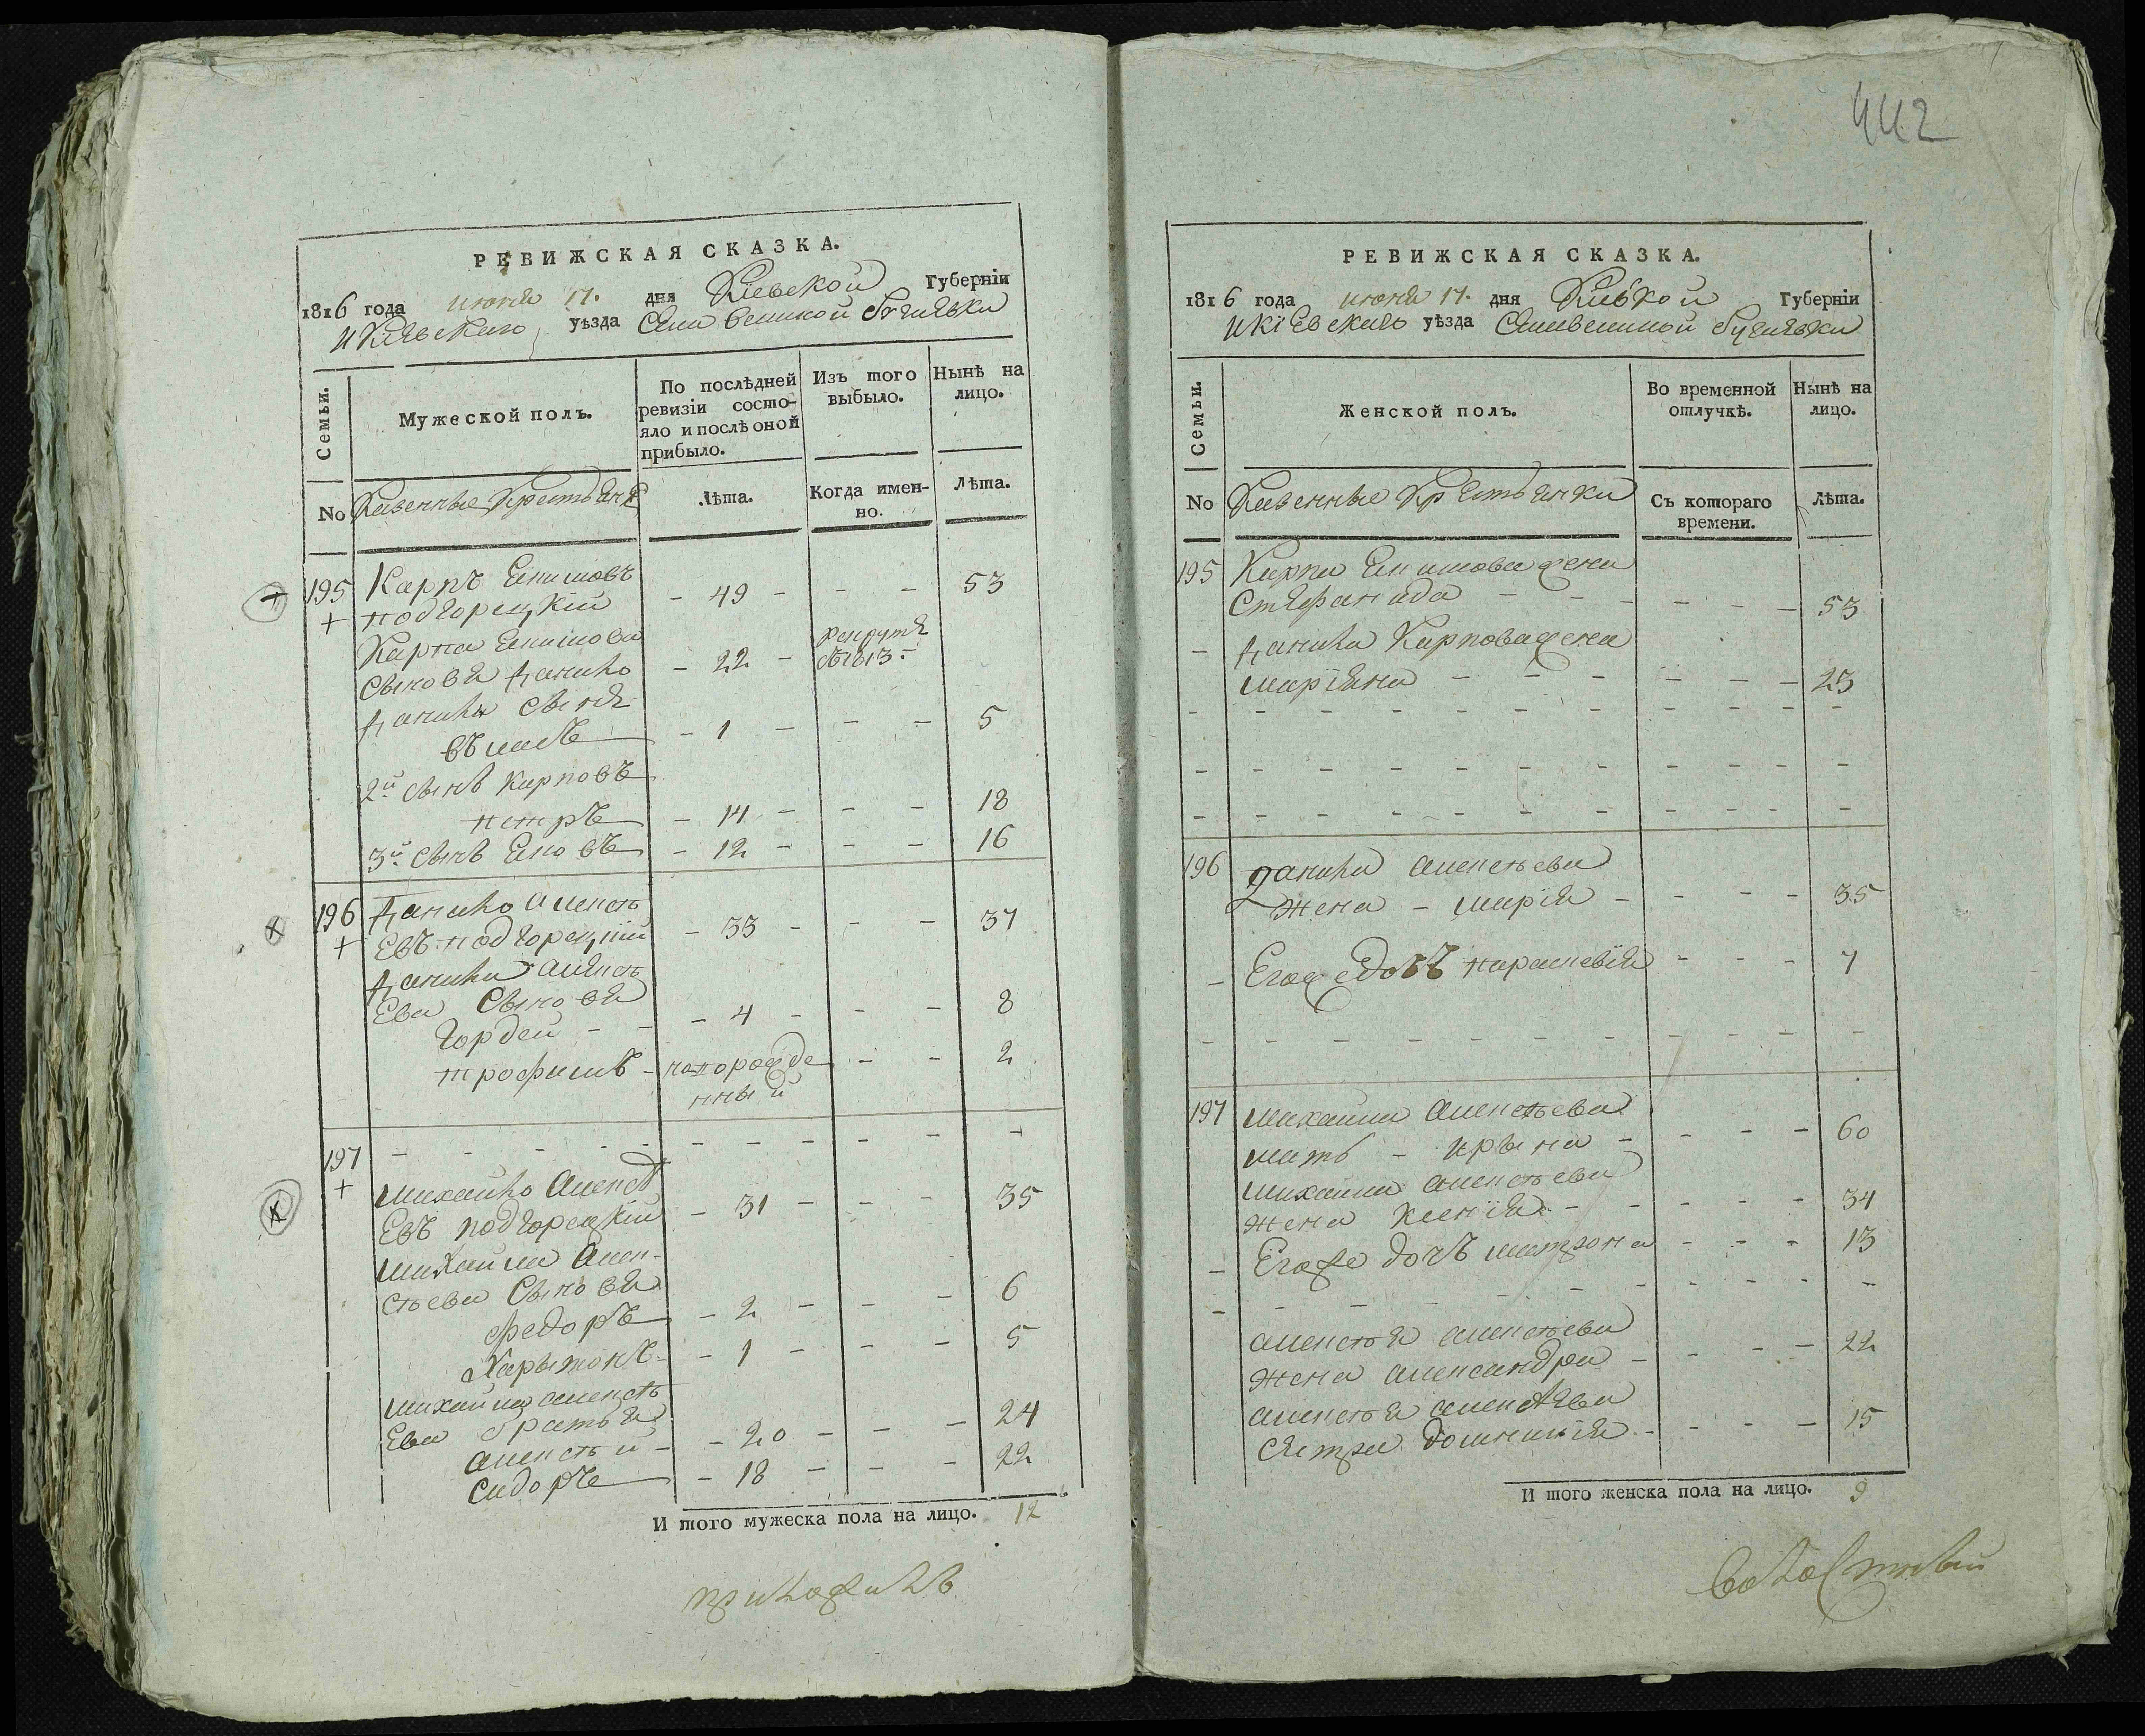 РЕВИЖСКАЯ СКАЗКА.
1816 года июня 17. дня Кіевской Губерніи
и Кіевскаго уѣзда
Семьи.
Мужеской полъ.
По послѣдней ревизіи состояло и послѣ оной прибыло.
Изъ того выбыло.
Нынѣ на лицо.
No Казенные Крестьяне
Лѣта.
Когда именно.
Лѣта.
195 Карпъ Екимовъ
+ подгорецкій - 49 - - - 53
Карпа Екимова
сыновя Данило - 22 - рекрутя въ 1813 -
Данила сыня
- 1 - - - 5
2й сынъ Карповъ
петръ - 14 - - - 18
3й сынъ - 12 - - - 16
196 Данило Алексѣ
+ Евъ подгорецкій - 33 - - - 37
Данила Алексѣ
Ева Сыновя
Гордей - - - 4 - - - 8
трофимъ - новорожде - - 2
нный
197 - - - - - - - - - - -
+ Михайло Алексѣ
Евъ подгорецкій - 31 - - - 35
Михайла Алек-
сѣева Сыновя
федоръ - 2 - - - 6
Харытонъ - - 1 - - - 5
Михайла алексѣ
Ева братья
алексѣй - - 20 - - - 24
Сидоръ - 18 - - - 22
И того мужеска пола на лицо. 12
442
РЕВИЖСКАЯ СКАЗКА.
1816 года июня 17. дня Губерніи
и кіевскаго уѣзда
Семьи.
Женской полъ.
Во временной отлучкѣ.
Нынѣ на лицо.
No Казенные Крестьянки
Съ котораго времени.
Лѣта.
195 Карпа Екимова жена
Стефанида - - - - - - 53
- Данила Карпова жена
маріяна - - - - - - 23
- - - - - - - - - - - - -
- - - - - - - - - - - - -
- - - - - - - - - - - - -
196 Данила алексѣева
жена - марія - - - - 35
- Его параскевія - - - 7
- - - - - - - - - - - - -
197 Михайла алексѣева
мать - ирына - - - - 60
Михайла алексѣева
жена ксенія - - - - - 34
- Егоже дочъ матрона - - - 13
- - - - - - - - - - - -
алексѣя алексѣева
жена александра - - - - 22
алексѣя алексѣева
сестра домникія - - - - 15
И того женска пола на лицо. 9